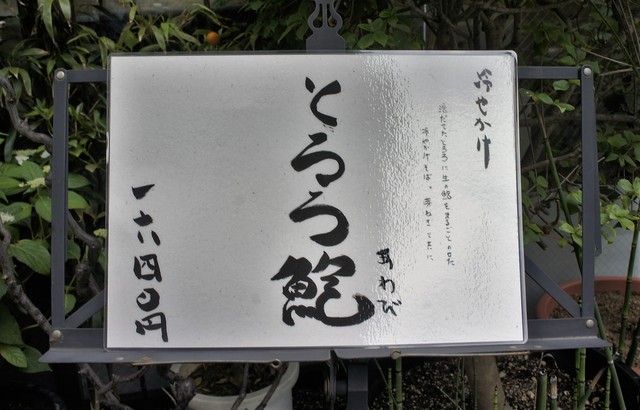 冷やかけ
泡だてたとろろに生の鮑をまるごとのせた
冷やかけそば。
とろろ鮑
あわび
一六四〇円